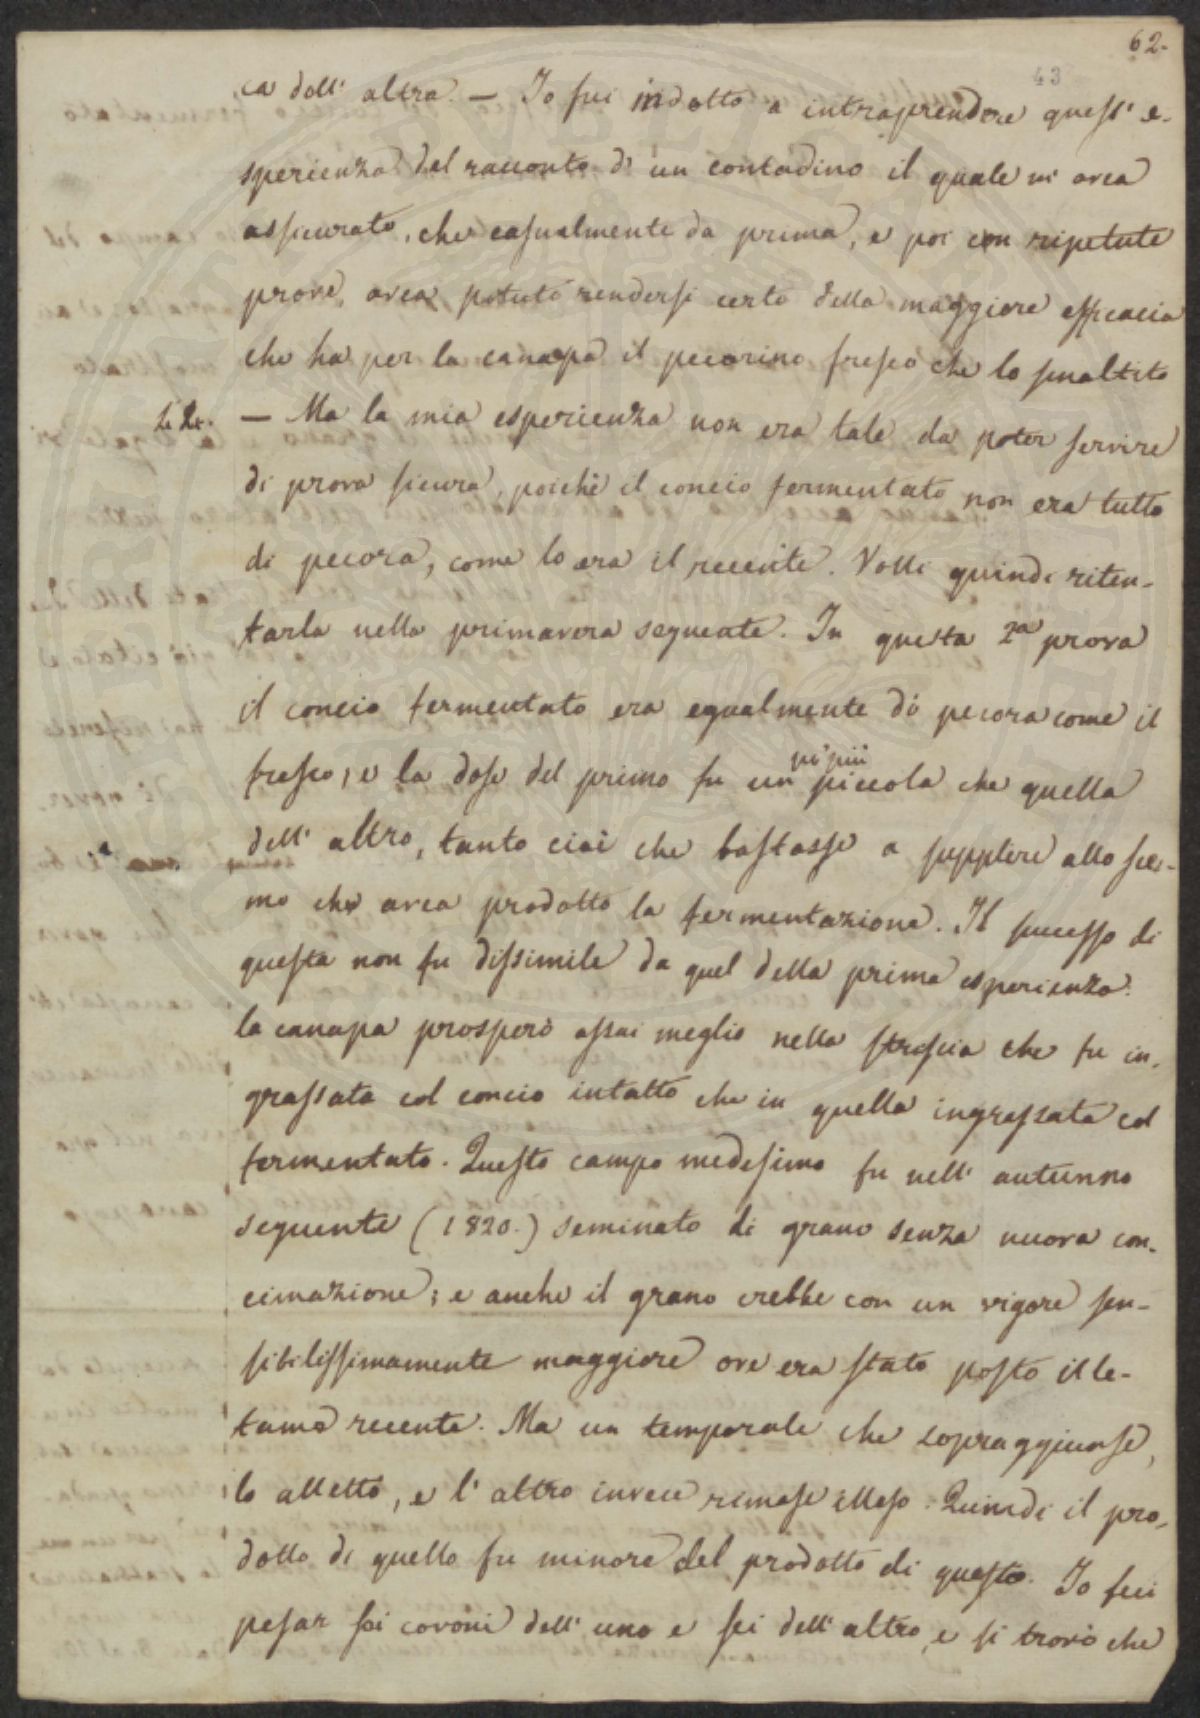 62.
43
ca dall' altra. — Io fui indotto a intraprendere quest' e-
sperienza dal racconto di un contadino il quale m' avea
assicurato, che casualmente da prima, e poi con ripetute
prove, avea potuto rendersi certo della maggiore efficacia
che ha per la canapa il pecorino fresco che lo smaltito
— Ma la mia esperienza non era tale da poter servire
di prova sicura, poichè il concio fermentato non era tutto
di pecora, come lo era il recente. Volli quindi riten-
tarla nella primavera seguente. In questa 2a prova
il concio fermentato era egualmente di pecora come il
fresco; e la dose del primo fu un pò più piccola che quella
dell' altro, tanto cioè che bastasse a supplere allo sce-
mo che avea prodotto la fermentazione. Il successo di
questa non fu dissimile da quel della prima esperienza.
la canapa prosperò assai meglio nella striscia che fu in-
grassata col concio intatto che in quella ingrassata col
fermentato. Questo campo medesimo fu nell' autunno
seguente (1820.) seminato di grano senza nuova con-
cimazione; e anche il grano crebbe con un vigore sen-
sibilissimamente maggiore ove era stato posto il le-
tame recente. Ma un temporale che sopraggiunse,
lo allettò, e l' altro invece rimase illeso. Quindi il pro-
dotto di quello fu minore del prodotto di questo. Io feci
pesar sei covoni dell' uno e sei dell' altro, e si trovò che